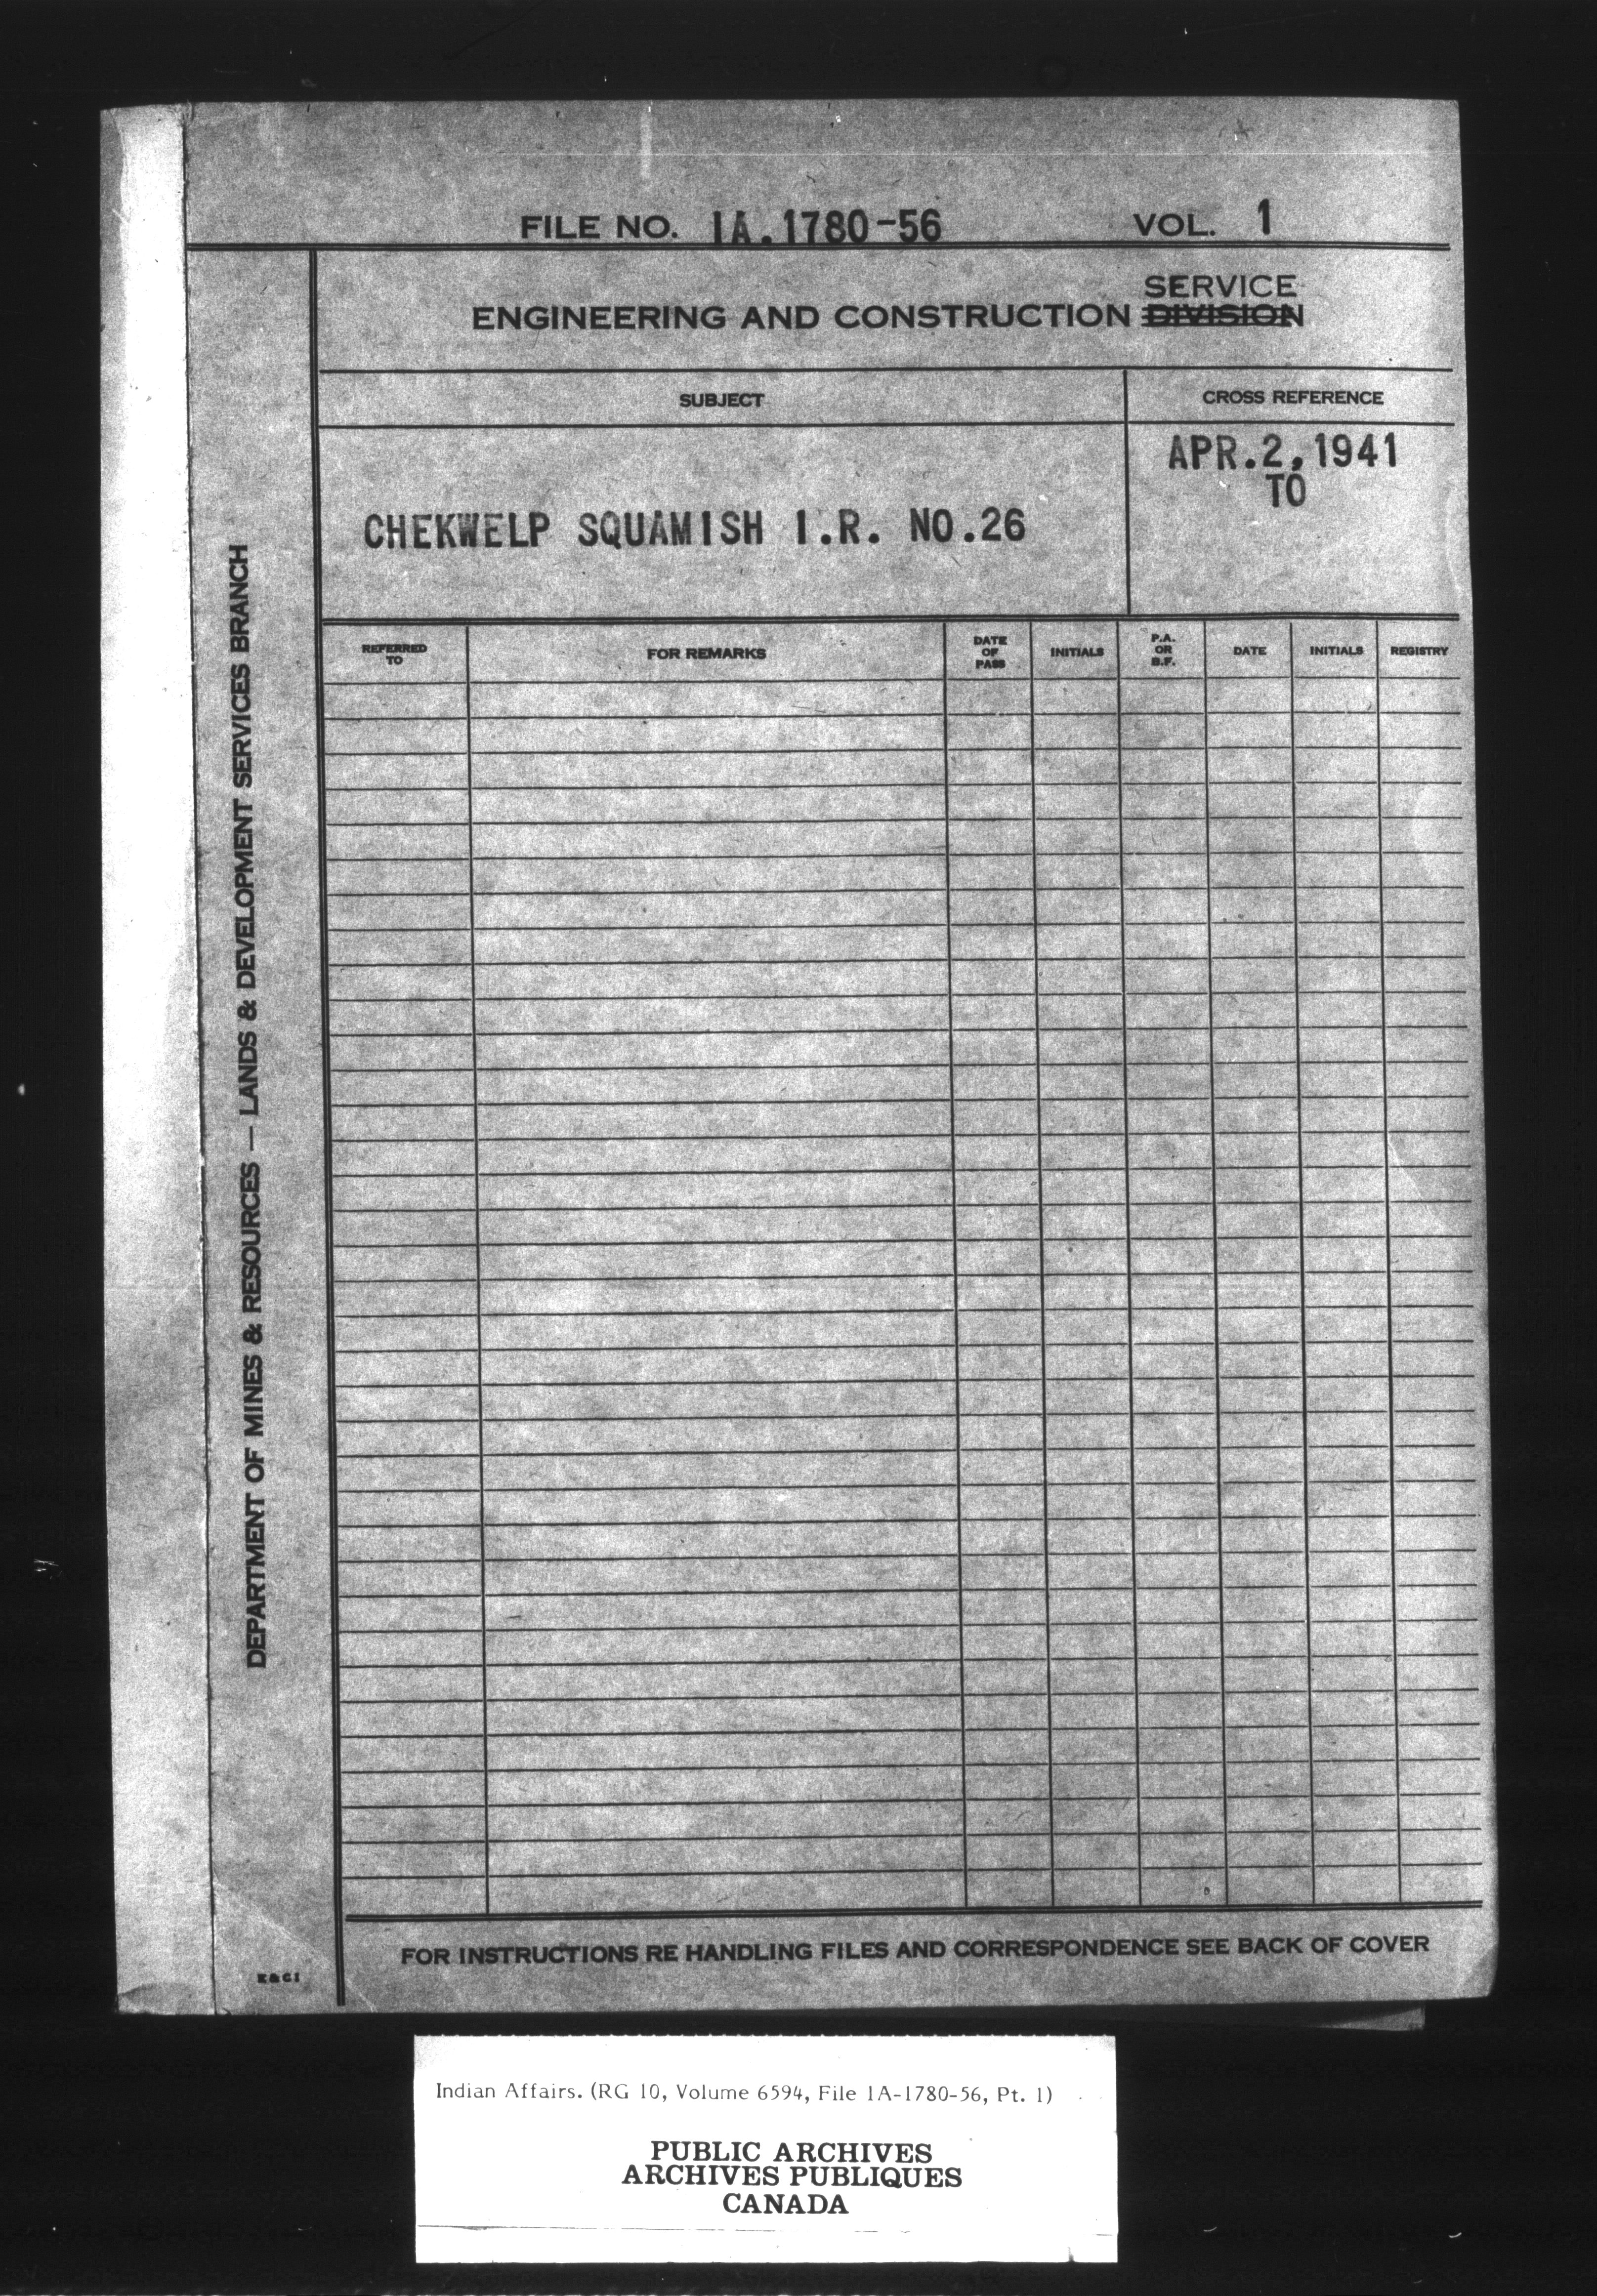 FILE NO. 1A.1780-56 VOL. 1
SERVICE
ENGINEERING AND CONSTRUCTION DIVISION
SUBJECT
CROSS REFERENCE
CHEKWELP SQUAMISH I.R. NO.26
APR.2,1941
TO
REFERRED
TO
FOR REMARKS
DATE
OF
PASS
INITIALS
P.A.
OR
B.F.
DATE
INITIALS
REGISTRY
DEPARTMENT OF MINES & RESOURCES — LANDS & DEVELOPMENT SERVICES BRANCH
FOR INSTRUCTIONS RE HANDLING FILES AND CORRESPONDENCE SEE BACK OF COVER
E & C 1
Indian Affairs. (RG 10, Volume 6594, File 1A-1780-56, Pt. 1)
PUBLIC ARCHIVES
ARCHIVES PUBLIQUES
CANADA